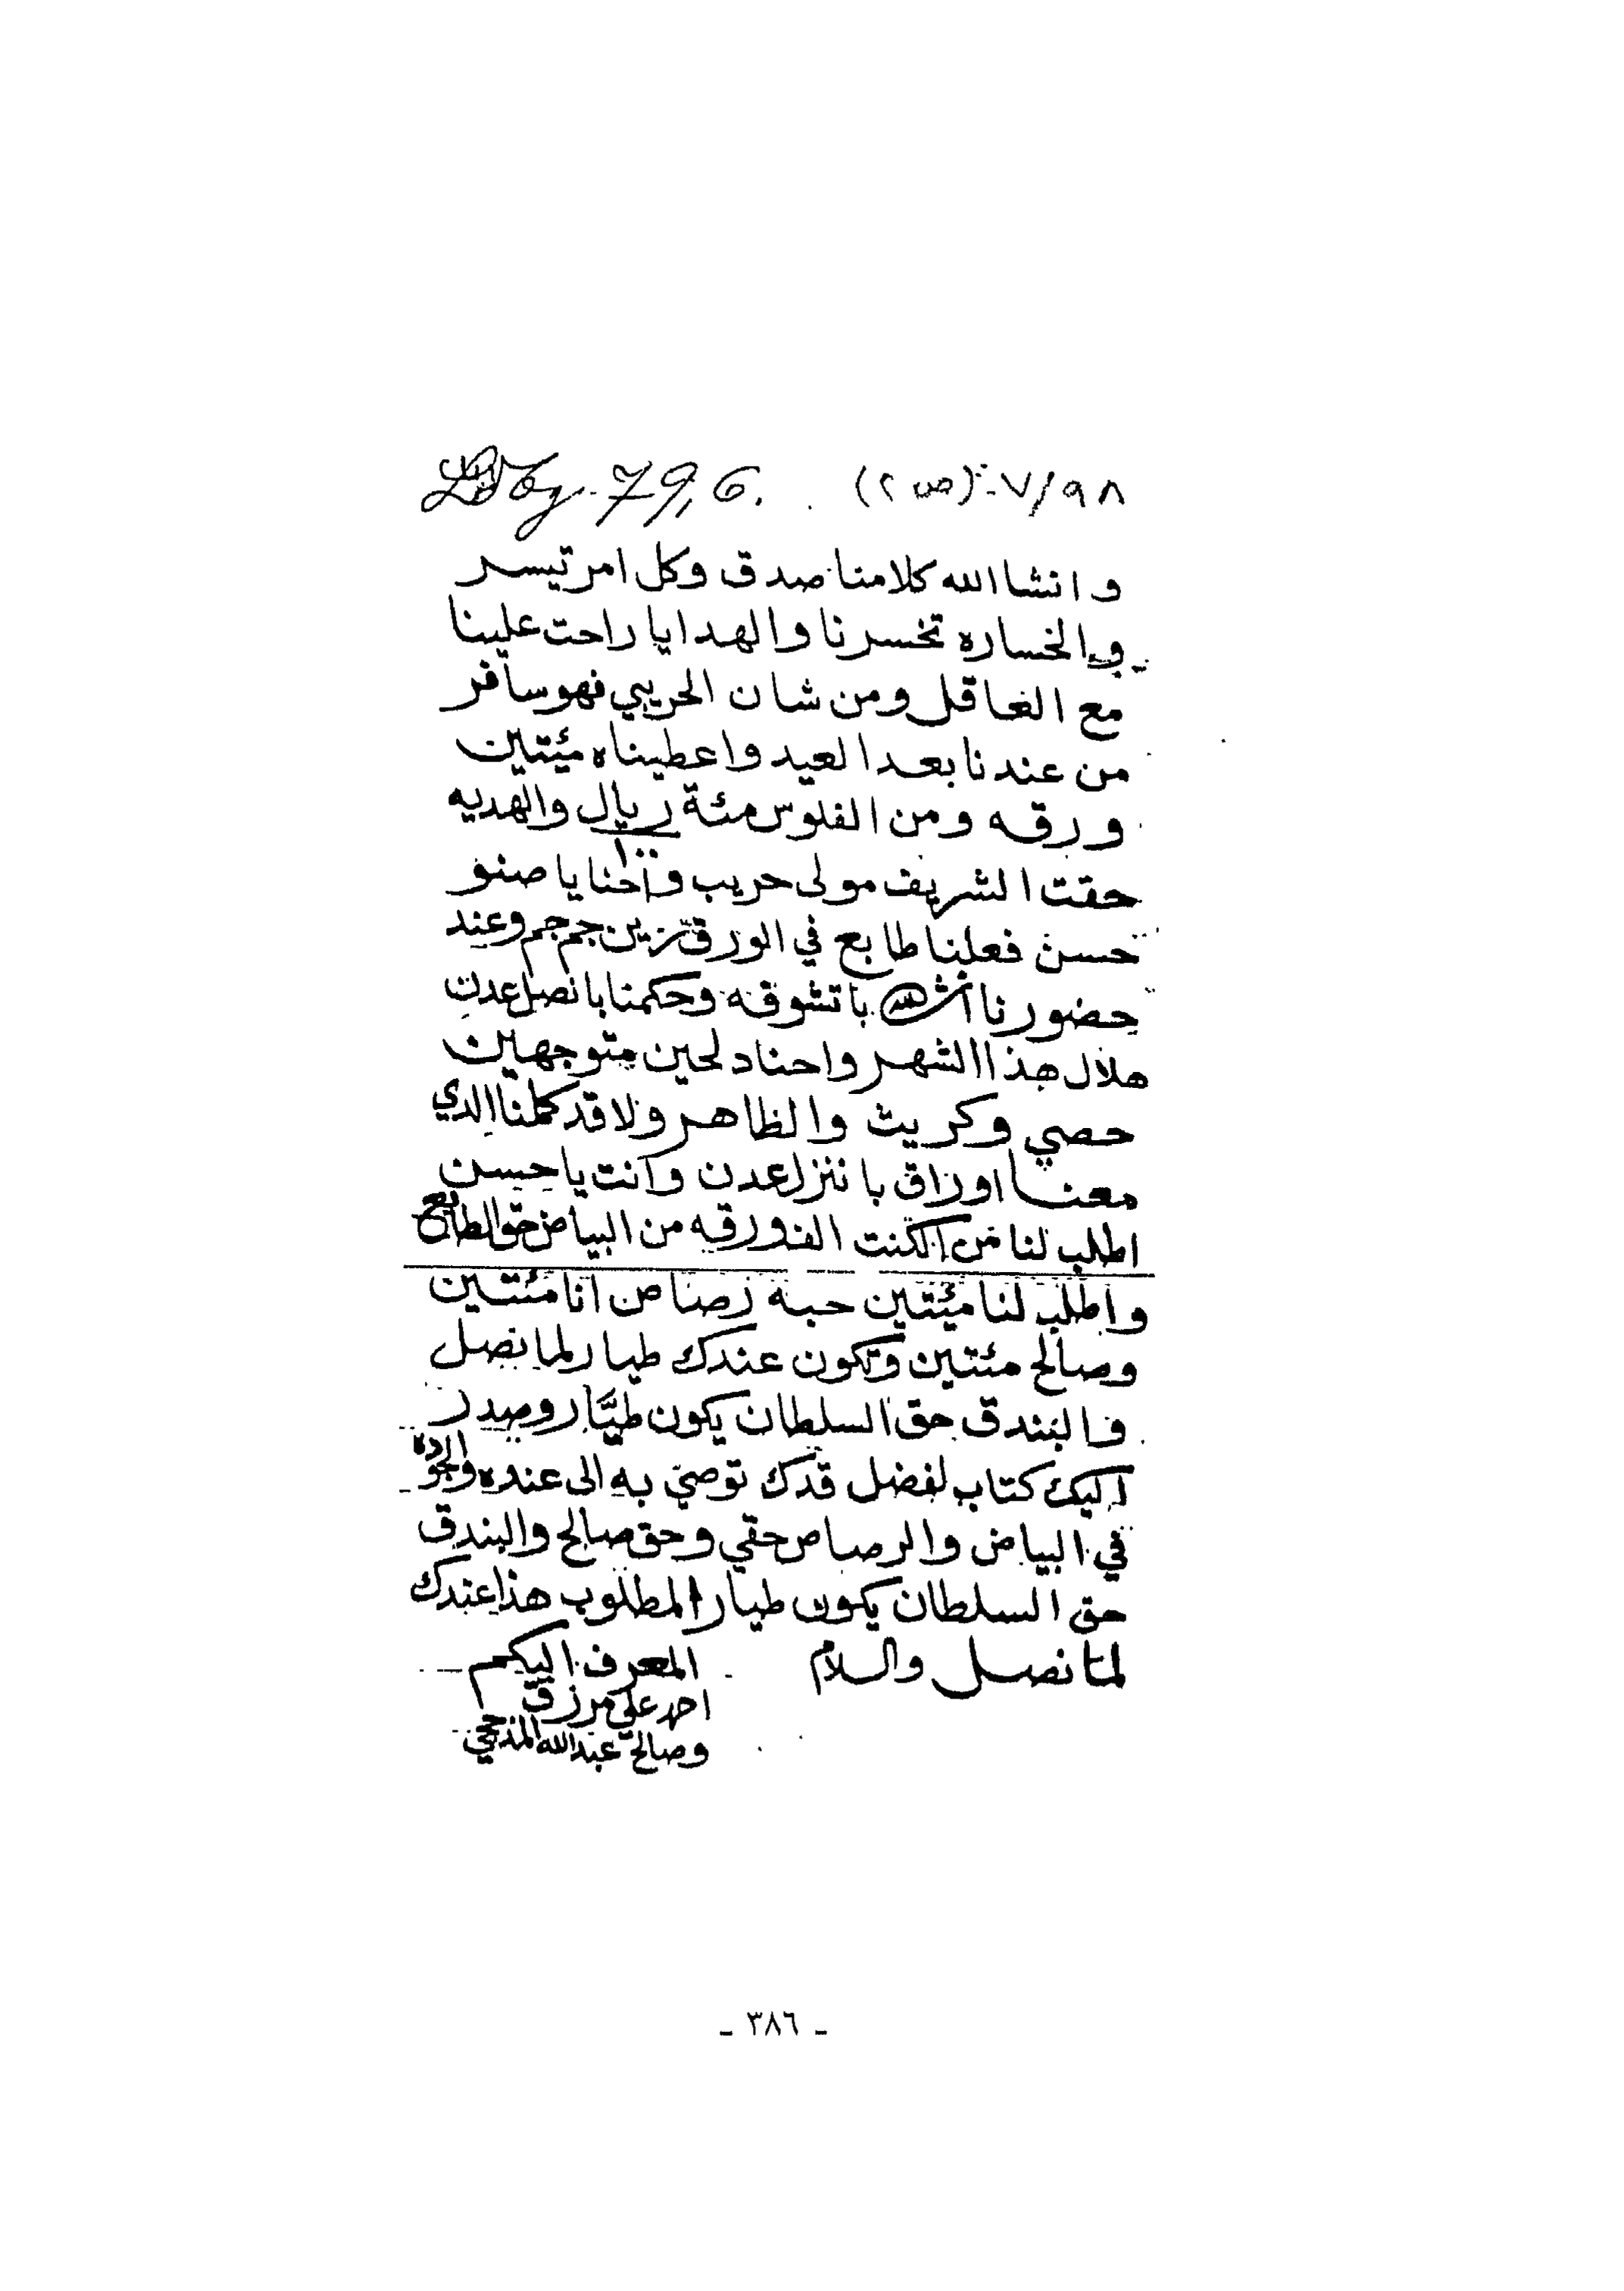 ٧/٩٨ - (ص ٢) 79,6.
وانشا الله كلامنا صدق وكل امر تيسر
والخساره تخسرنا والهدايا راحت علينا
مع العاقل ومن شان الحريبي فهو سافر
من عندنا بعد العيد واعطيناه مئتين
ورقه ومن الفلوس مئة ريال والهديه
١٠٠
حقت الشريف مولى حريب واحنا يا صنو
حسن فعلنا طابع في الورق زين جم جم وعند
حضورنا انشالله باتشوقه وحكمنا بانصل عدن
هلال هذا الشهر واحنا دلحين متوجهين
حصي وكريث والظاهر ولا قد كملنا الدي
معنا اوراق با ننزل عدن وانت يا حسن
اطلب لنا من الكنت الف ورقه من البياض حق الطابع
واطلب لنا مئتين حبة رصاص انا مئتين
وصالح مئتين وتكون عندك طيار لما نصل
والبندق حق السلطان يكون طيَّار وصدر
اليك كتاب لفضل قدك توصي به الى عنده والجوده
في البياض والرصاص حقي وحق صالح والبندق
حق السلطان يكون طيار المطلوب هذا عندك
لما نصل والسلام المعرف اليكم
احمد علي مرزق
وصالح عبدالله المذحجي
- ٣٨٦ -